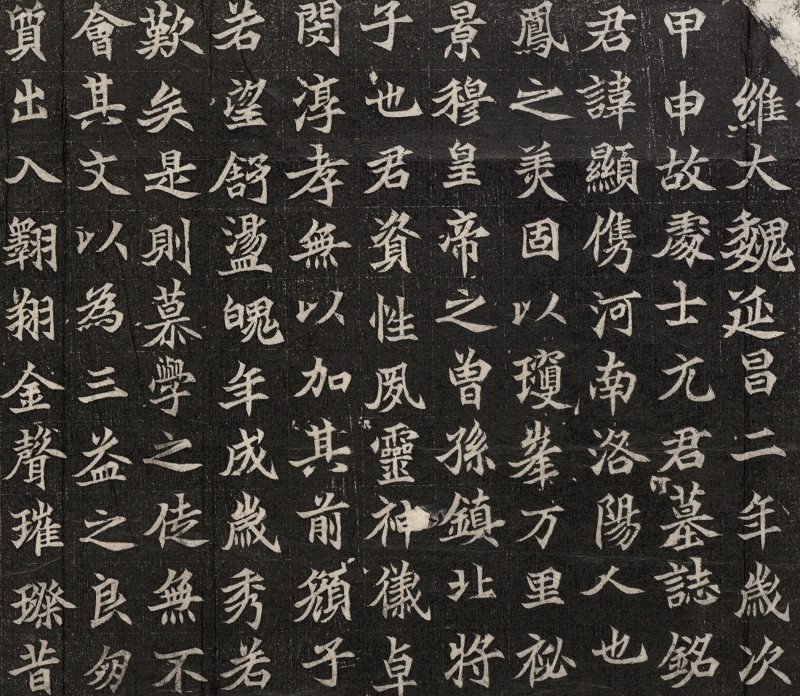 維大魏延昌二年歲次
甲申故處士元君墓誌銘
君諱顯儁河南洛陽人也
鳳之美固以瓊峯万里祕
景穆皇帝之曽孫鎮北將
子也君資性夙靈神儀卓
閔淳孝無以加其前顏子
若望舒盪魄年成歲秀若
歎矣是則慕學之徒無不
會其文以為三益之良朋
質出入翱翔金聲璀璨昔